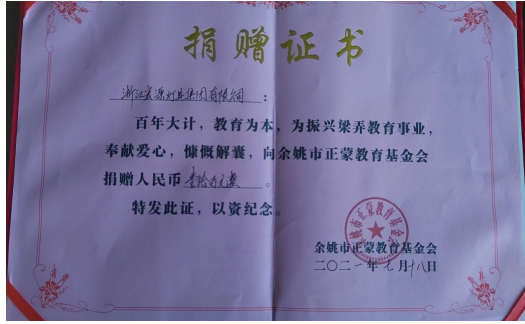 捐赠证书
浙江宏源灯具集团有限公司：
百年大计，教育为本，为振兴梁弄教育事业，
奉献爱心，慷慨解囊，向余姚市正蒙教育基金会
捐赠人民币壹拾万元整。
特发此证，以资纪念。
余姚市正蒙教育基金会
余姚市正蒙教育基金会
二〇二一年七月十八日